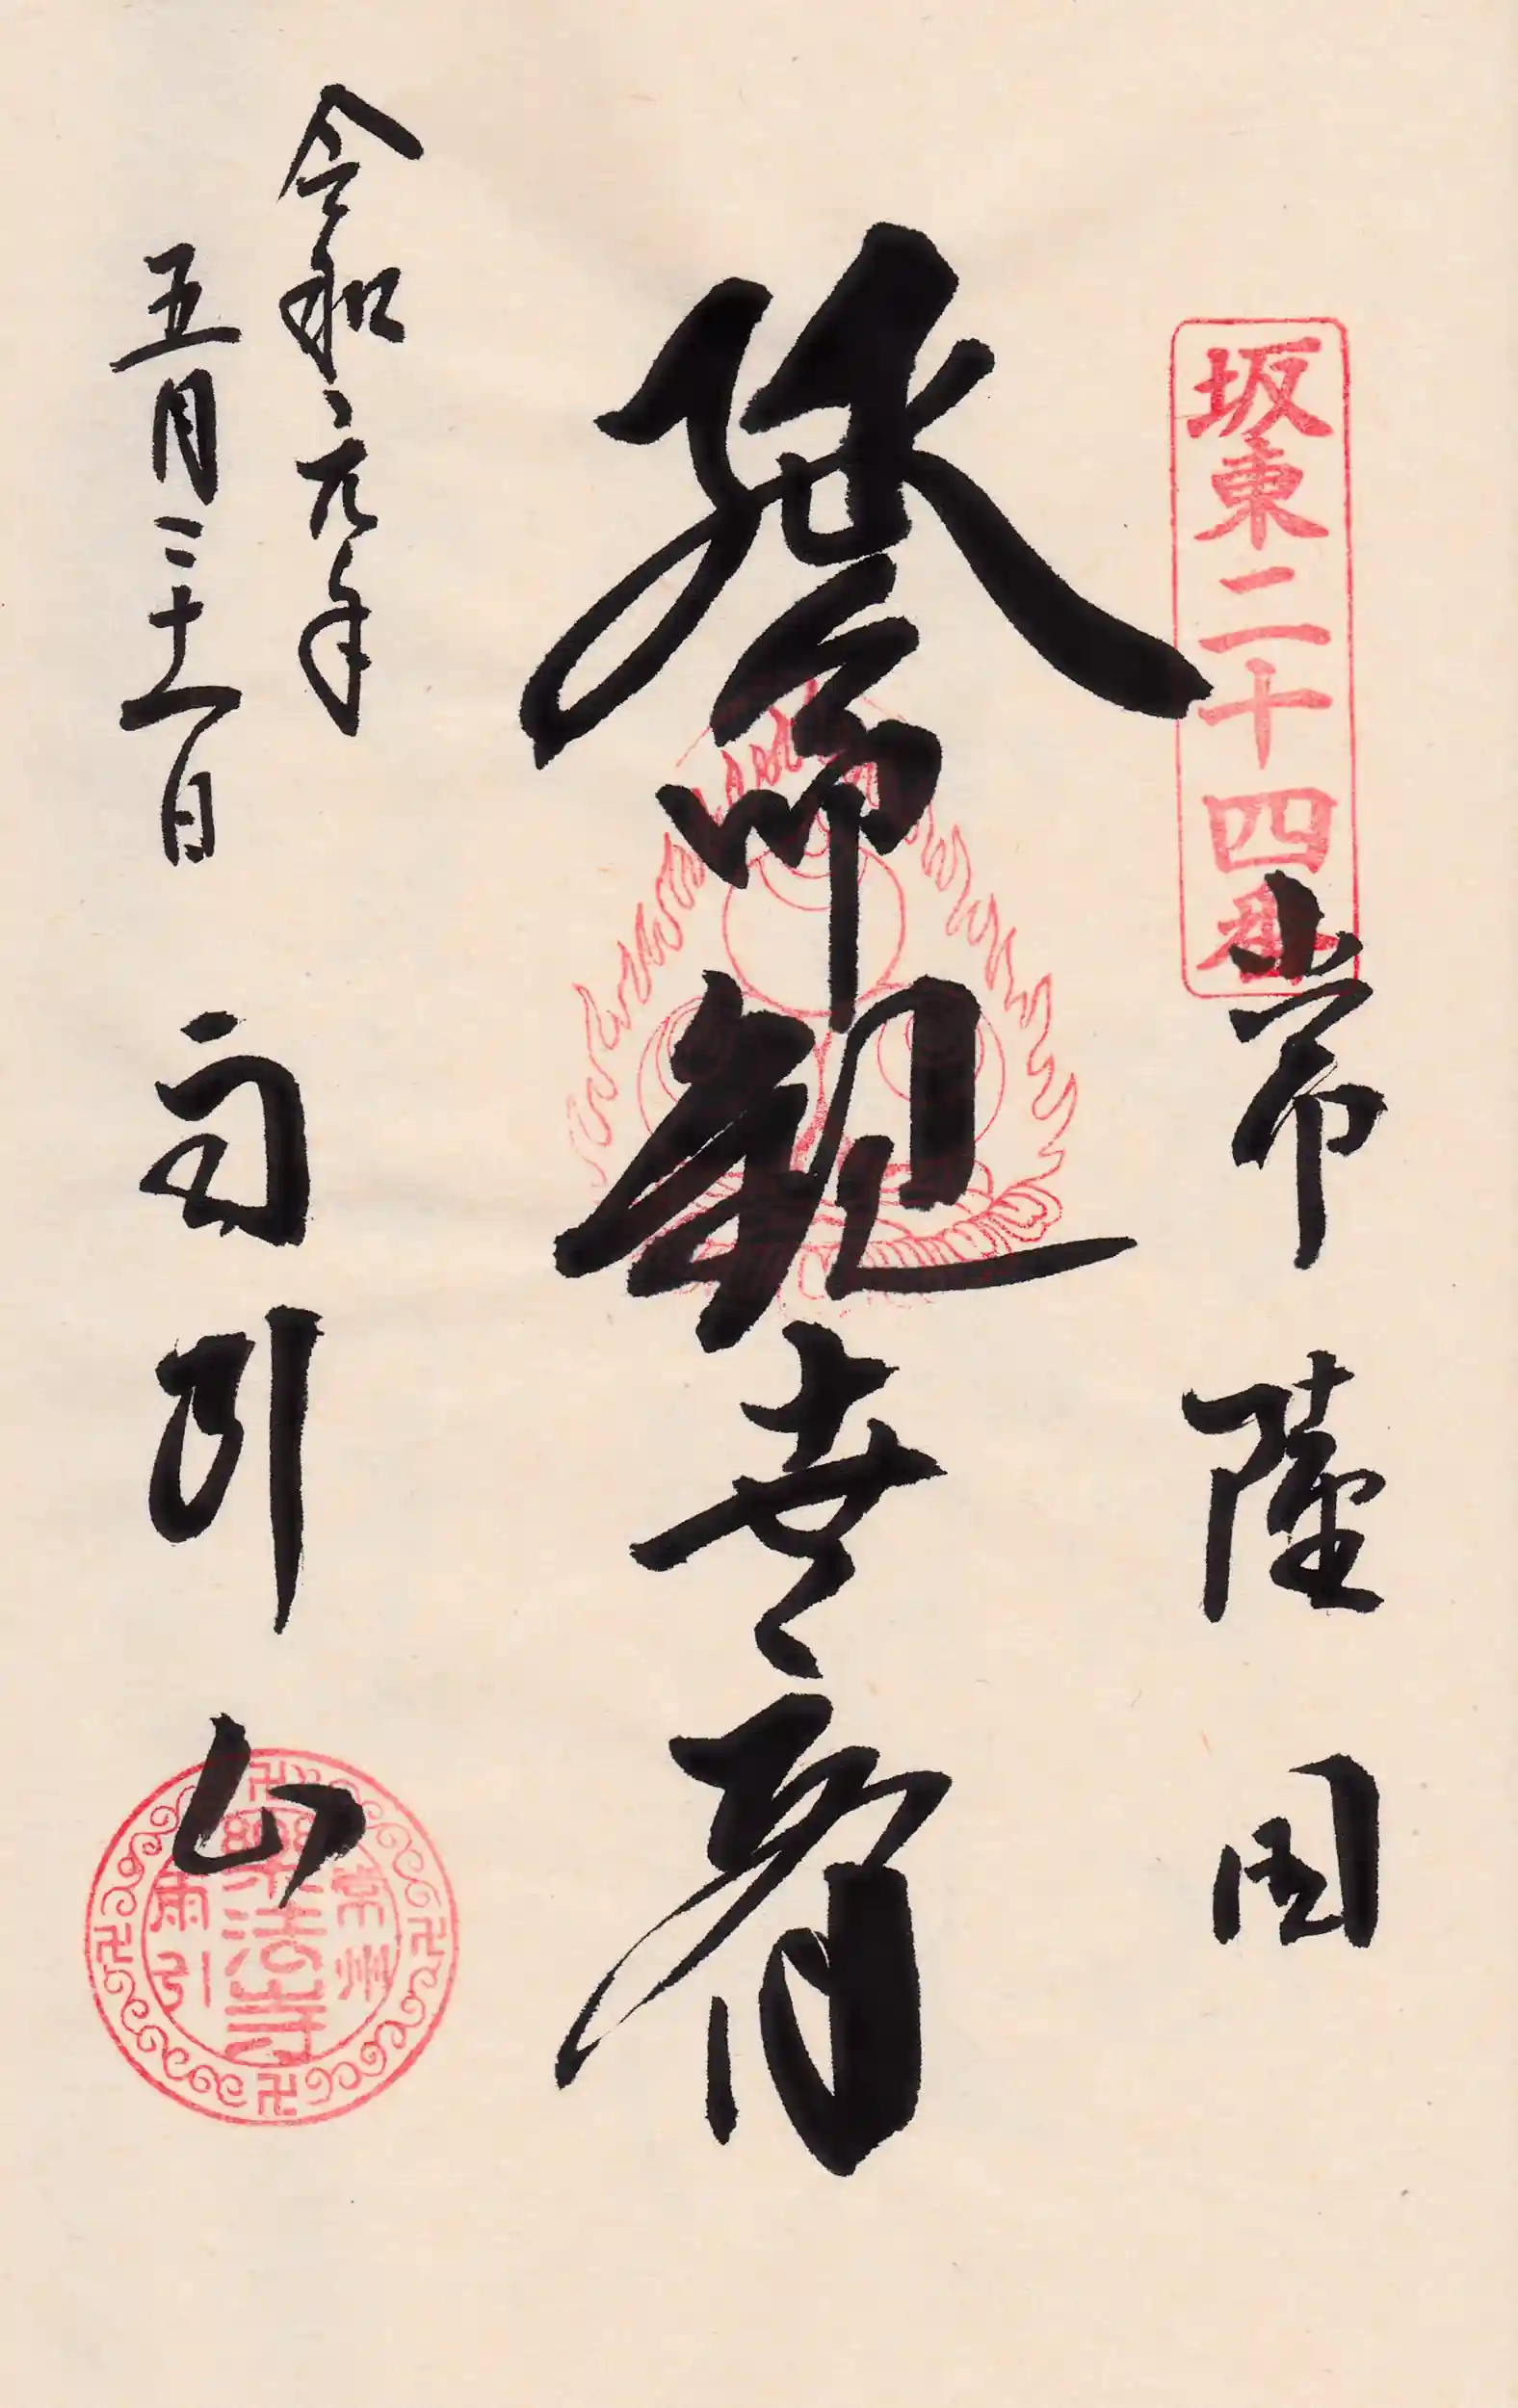 坂東二十四番
常陸国
延命観世音
令和元年
五月二十一日
雨引山
常州
樂法寺
雨引